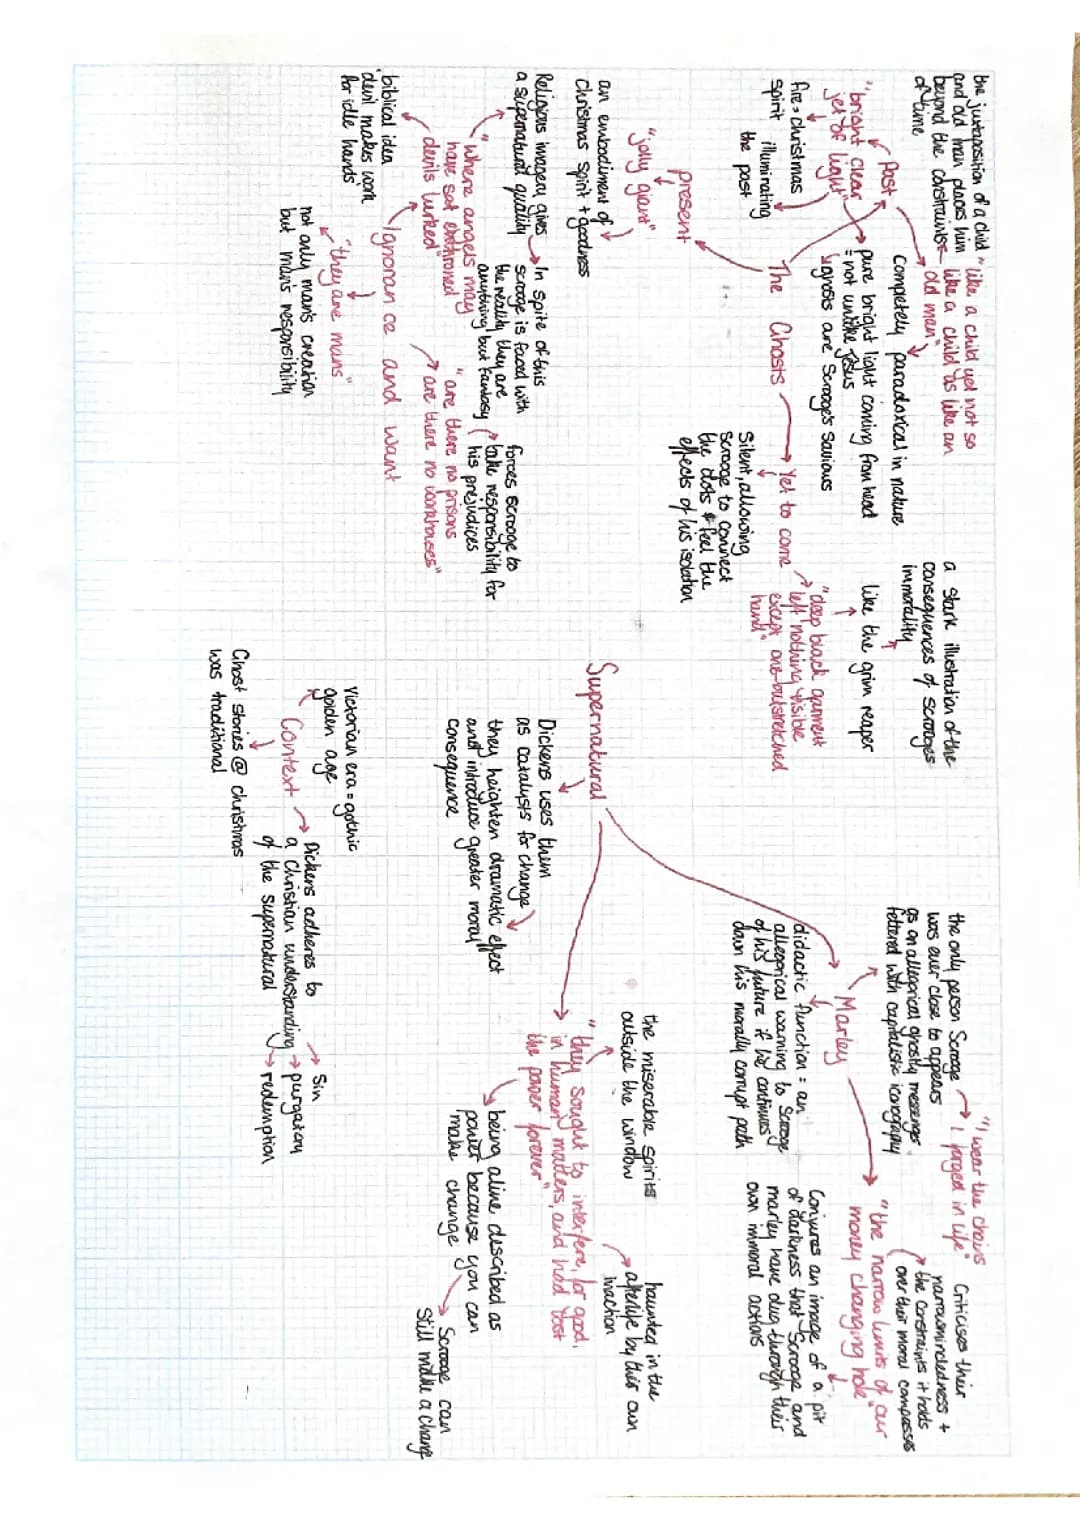 the juxtaposition of a child
and old man places him
beyond the constraints
of time
"like a child yet not so
like a child as like an
old man"
Past
Completely paradoxical in nature
"bright clear
jet of light"
pure bright light coming from head
= not unlike Jesus
ghosts are Scrooge's saviours
fire = christmas
spirit illuminating
the past
The Ghosts
present
"jolly giant"
an embodiment of
christmas spirit + goodness
Yet to come
Silent, allowing
scrooge to connect
the dots & feel the
effects of his isolation
"deep black garment
left nothing visible
except one outstretched
hand"
like the grim reaper
a stark illustration of the
consequences of scrooges
immorality
Religious imagery gives
a supernatural quality
In spite of this
scrooge is faced with
the reality they are
anything but fantasy
"where angels may
have sat enthroned
devils lurked"
biblical idea
'devil makes work
for idle hands'
Ignorance and want
"they are mans"
not only man's creation
but man's responsibility
forces scrooge to
take responsibility for
his prejudices
"are there no prisons
are there no workhouses"
Supernatural
Dickens uses them
as catalysts for change
they heighten dramatic effect
and introduce greater moral
consequence
Marley
the only person Scrooge
was ever close to appears
as an allegorical ghostly messenger
fettered with capitalistic iconography
"I wear the chains
I forged in life"
didactic function = an
allegorical warning to Scrooge
of his future if he continues
down his morally corrupt path
"the narrow limits of our
money changing hole"
Criticises their
narrowmindedness +
the constraints it holds
over their moral compasses
Conjures an image of a pit
of darkness that Scrooge and
marley have dug through their
own immoral actions
"they sought to interfere, for good,
in human matters, and had lost
the power forever"
the miserable spirits
outside the window
haunted in the
afterlife by their own
inaction
being alive described as
power because you can
make change
Scrooge can
still make a change
Context
Victorian era = gothic
golden age
Ghost stories @ Christmas
was traditional
Dickens adheres to
a Christian understanding
of the supernatural
sin
purgatory
redemption